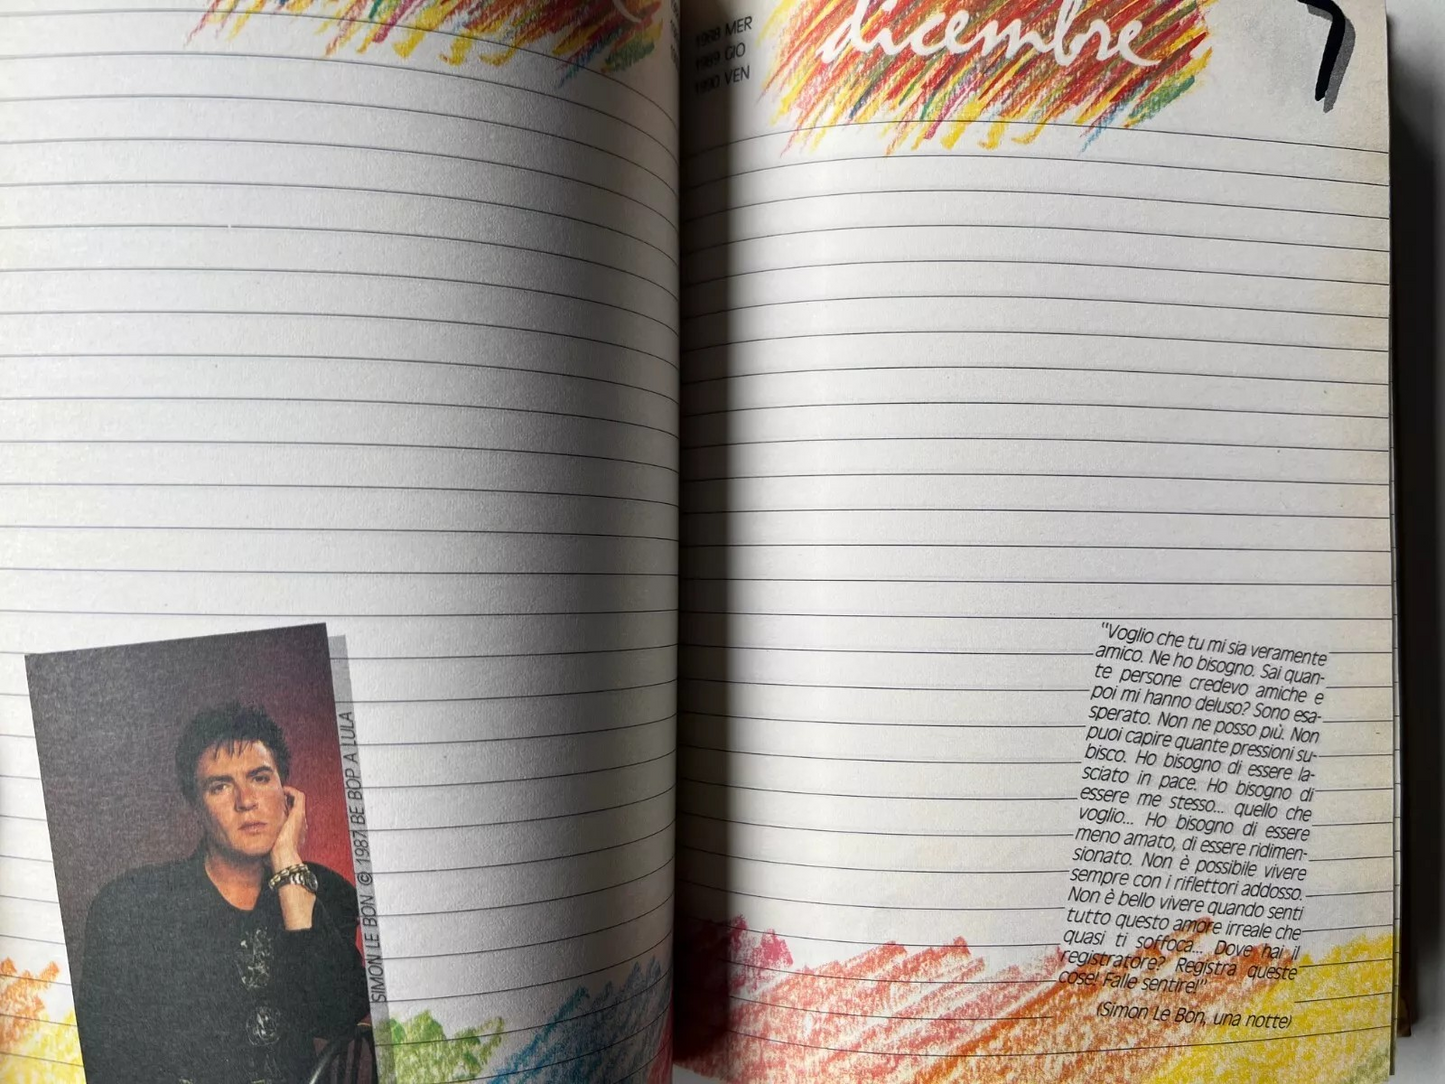 SIMON LE BON © 1987 BE BOP A LULA
1988 MER
1989 GIO
1990 VEN
dicembre
7
"Voglio che tu mi sia veramente
amico. Ne ho bisogno. Sai quan-
te persone credevo amiche e
poi mi hanno deluso? Sono esa-
sperato. Non ne posso più. Non
puoi capire quante pressioni su-
bisco. Ho bisogno di essere la-
sciato in pace. Ho bisogno di
essere me stesso... quello che
voglio... Ho bisogno di essere
meno amato, di essere ridimen-
sionato. Non è possibile vivere
sempre con i riflettori addosso.
Non è bello vivere quando senti
tutto questo amore irreale che
quasi ti soffoca... Dove hai il
registratore? Registra queste
cose! Falle sentire!"
(Simon Le Bon, una notte)